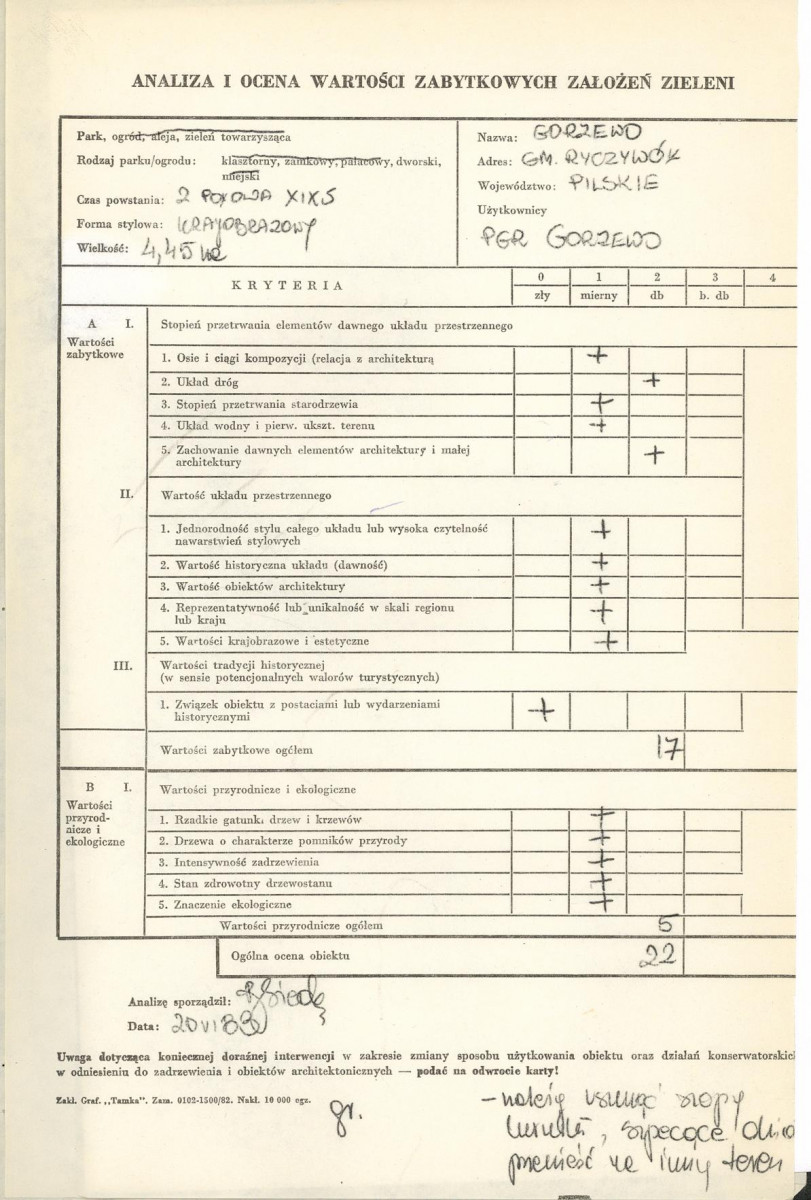 ANALIZA I OCENA WARTOŚCI ZABYTKOWYCH ZAŁOŻEŃ ZIELENI
Park, ogród, aleja, zieleń towarzysząca
Rodzaj parku/ogrodu: klasztorny, zamkowy, pałacowy, dworski,
miejski
Czas powstania: 2 POŁOWA XIX S
Forma stylowa: KRAJOBRAZOWY
Wielkość: 4,45 ha
Nazwa: GORZEWO
Adres: GM. RYCZYWÓŁ
Województwo: PILSKIE
Użytkownicy
PGR GORZEWO
KRYTERIA
0 1 2 3 4
zły mierny db b. db
A I. Stopień przetrwania elementów dawnego układu przestrzennego
Wartości
zabytkowe
1. Osie i ciągi kompozycji (relacja z architekturą +
2. Układ dróg +
3. Stopień przetrwania starodrzewia +
4. Układ wodny i pierw. ukszt. terenu +
5. Zachowanie dawnych elementów architektury i małej
architektury +
II. Wartość układu przestrzennego
1. Jednorodność stylu całego układu lub wysoka czytelność
nawarstwień stylowych +
2. Wartość historyczna układu (dawność) +
3. Wartość obiektów architektury +
4. Reprezentatywność lub unikalność w skali regionu
lub kraju +
5. Wartości krajobrazowe i estetyczne +
III. Wartości tradycji historycznej
(w sensie potencjonalnych walorów turystycznych)
1. Związek obiektu z postaciami lub wydarzeniami
historycznymi +
Wartości zabytkowe ogółem 17
B I. Wartości przyrodnicze i ekologiczne
Wartości
przyrod-
nicze i
ekologiczne
1. Rzadkie gatunki drzew i krzewów +
2. Drzewa o charakterze pomników przyrody +
3. Intensywność zadrzewienia +
4. Stan zdrowotny drzewostanu +
5. Znaczenie ekologiczne +
Wartości przyrodnicze ogółem 5
Ogólna ocena obiektu 22
Analizę sporządził:
Data: 20 VI 83
Uwaga dotycząca koniecznej doraźnej interwencji w zakresie zmiany sposobu użytkowania obiektu oraz działań konserwatorskic
w odniesieniu do zadrzewienia i obiektów architektonicznych — podać na odwrocie karty!
Zakł. Graf. „Tamka”. Zam. 0102-1500/82. Nakł. 10 000 egz.
gr.
– należy usunąć szopy
szpecące
przenieść na inny teren